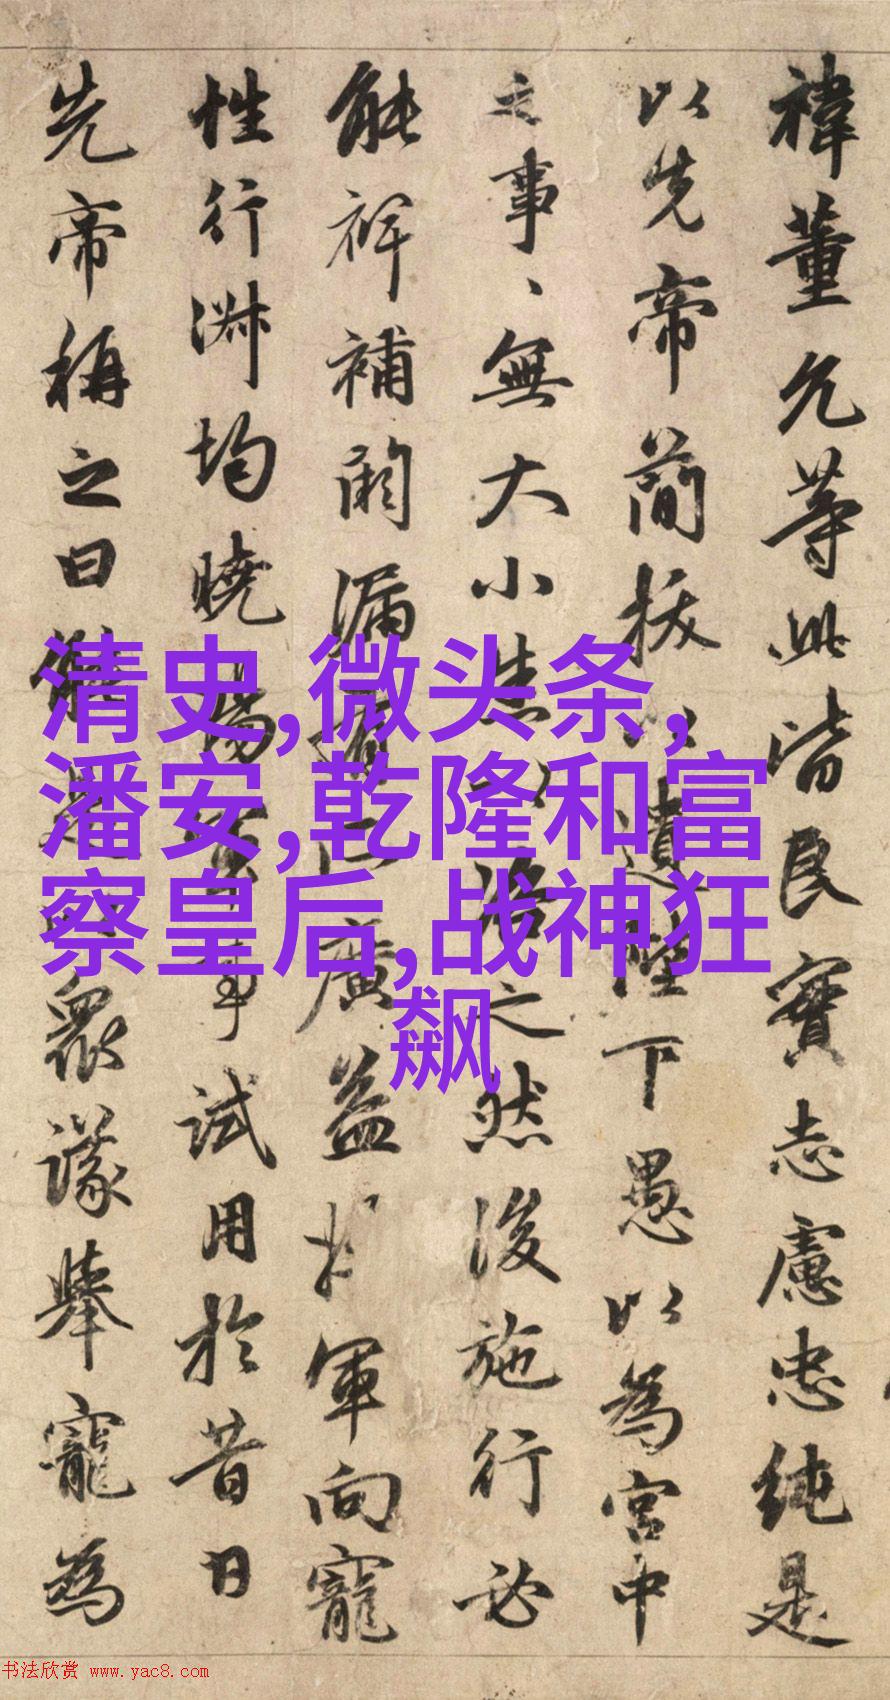 禕董允等此皆良實志慮忠純是
以先帝簡拔以遺陛下愚以為宮中
之事、無大小悉以咨之然後施行必
能裨補闕漏有所廣益將軍向寵
性行淋均曉暢軍事試用於昔日
先帝稱之曰能是以眾議舉寵為
清史,微头条,
潘安,乾隆和富
察皇后,战神狂
飙
书法欣赏 www.yac8.com